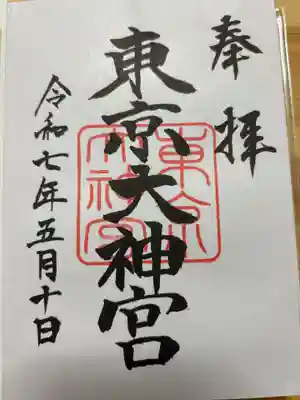 奉拝
東京大神宮
東京
大神宮
令和七年五月十日